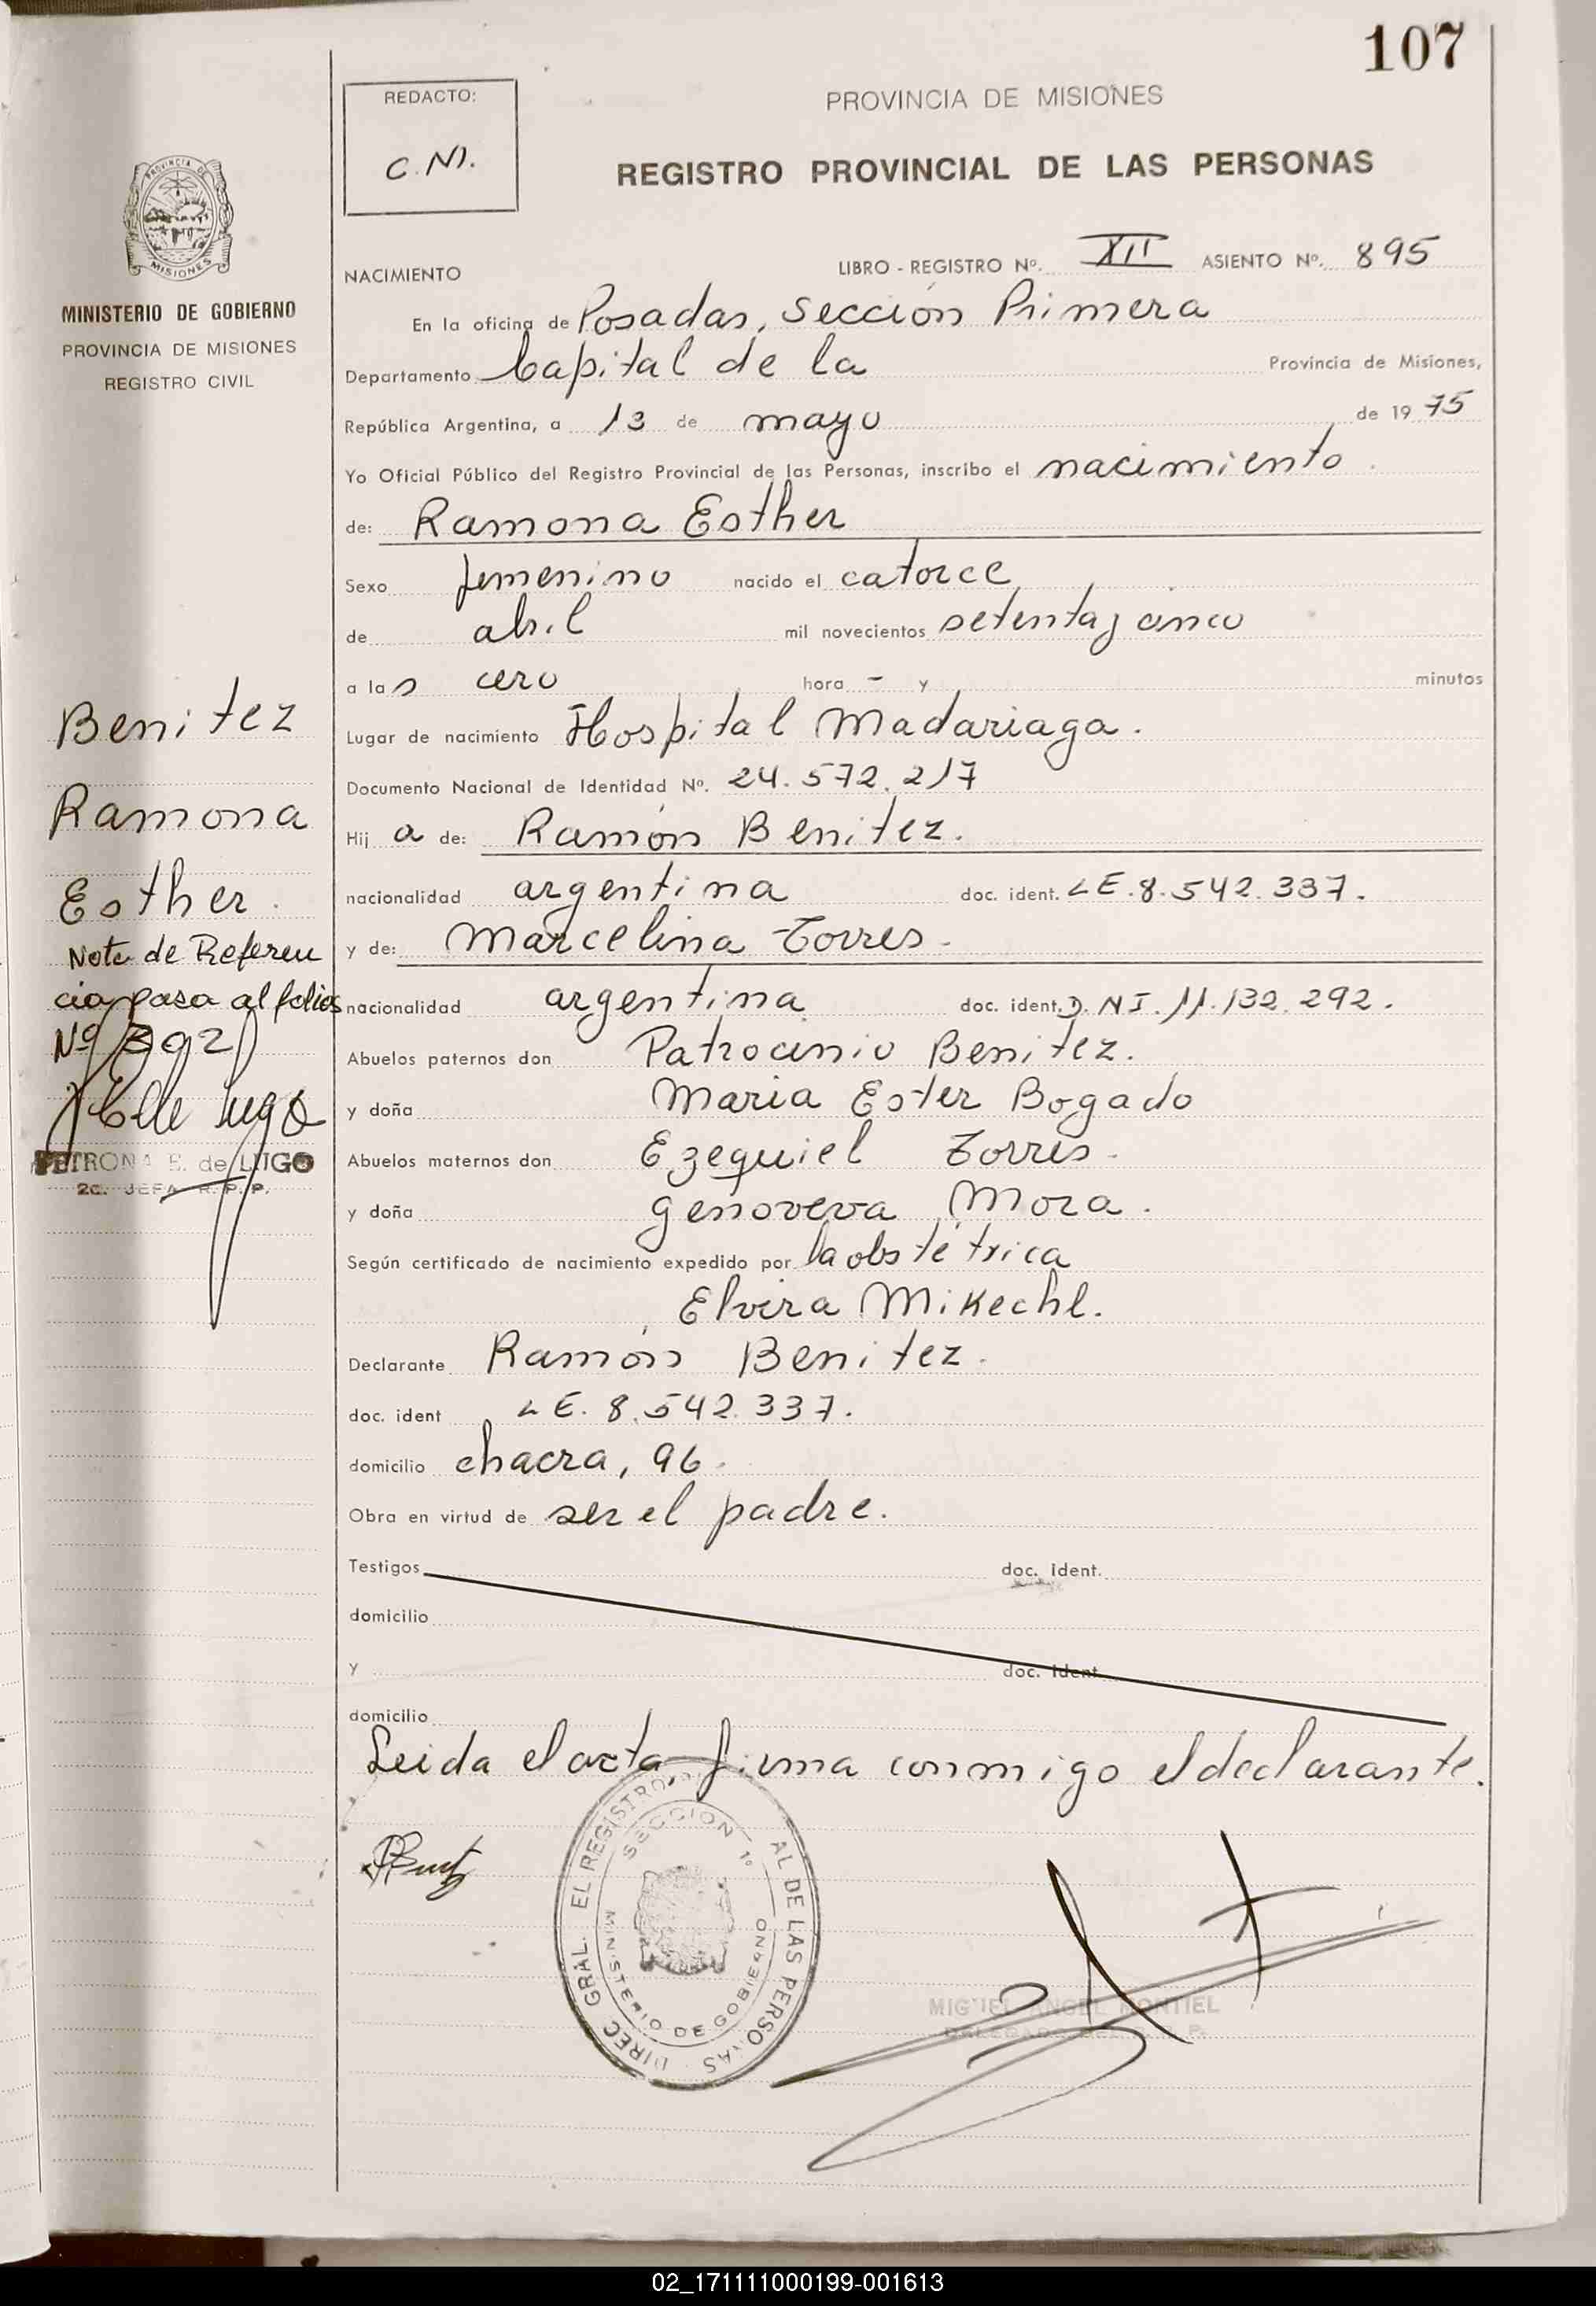 107
REDACTO:
C.N.
PROVINCIA DE MISIONES
REGISTRO PROVINCIAL DE LAS PERSONAS
PROVINCIA DE
MISIONES
MINISTERIO DE GOBIERNO
PROVINCIA DE MISIONES
REGISTRO CIVIL
NACIMIENTO LIBRO - REGISTRO Nº. XII ASIENTO Nº. 895
En la oficina de Posadas, Sección Primera
Departamento Capital de la Provincia de Misiones,
República Argentina, a 13 de mayo de 1975
Yo Oficial Público del Registro Provincial de las Personas, inscribo el nacimiento.
de: Ramona Esther
Sexo femenino nacido el catorce
de abril mil novecientos setenta y cinco
a las cero hora - y minutos
Lugar de nacimiento Hospital Madariaga.
Documento Nacional de Identidad Nº. 24.572.217
Hij a de: Ramón Benitez.
nacionalidad argentina doc. ident. LE.8.542.337.
y de: Marcelina Torres.
nacionalidad argentina doc. ident. D.NI.11.132.292.
Abuelos paternos don Patrocinio Benitez.
y doña Maria Ester Bogado
Abuelos maternos don Ezequiel Torres.
y doña genoveva Mora.
Según certificado de nacimiento expedido por la obstétrica
Elvira Mikechl.
Declarante Ramón Benitez.
doc. ident LE. 8.542.337.
domicilio chacra, 96.
Obra en virtud de ser el padre.
Testigos doc. ident.
domicilio
y doc. ident.
domicilio
Leida el acta firma conmigo el declarante.
Benitez
Ramona
Esther.
Nota de Referen
cia pasa al folios
Nº 392
PETRONA E. de LUGO
2a. JEFA R. P. P.
DIREC. GRAL. EL REGISTRO AL DE LAS PERSONAS
SECCION 1º
MINISTERIO DE GOBIERNO
MIGUEL ANGEL MONTIEL
DELEGADO DEL R. P.
02_171111000199-001613